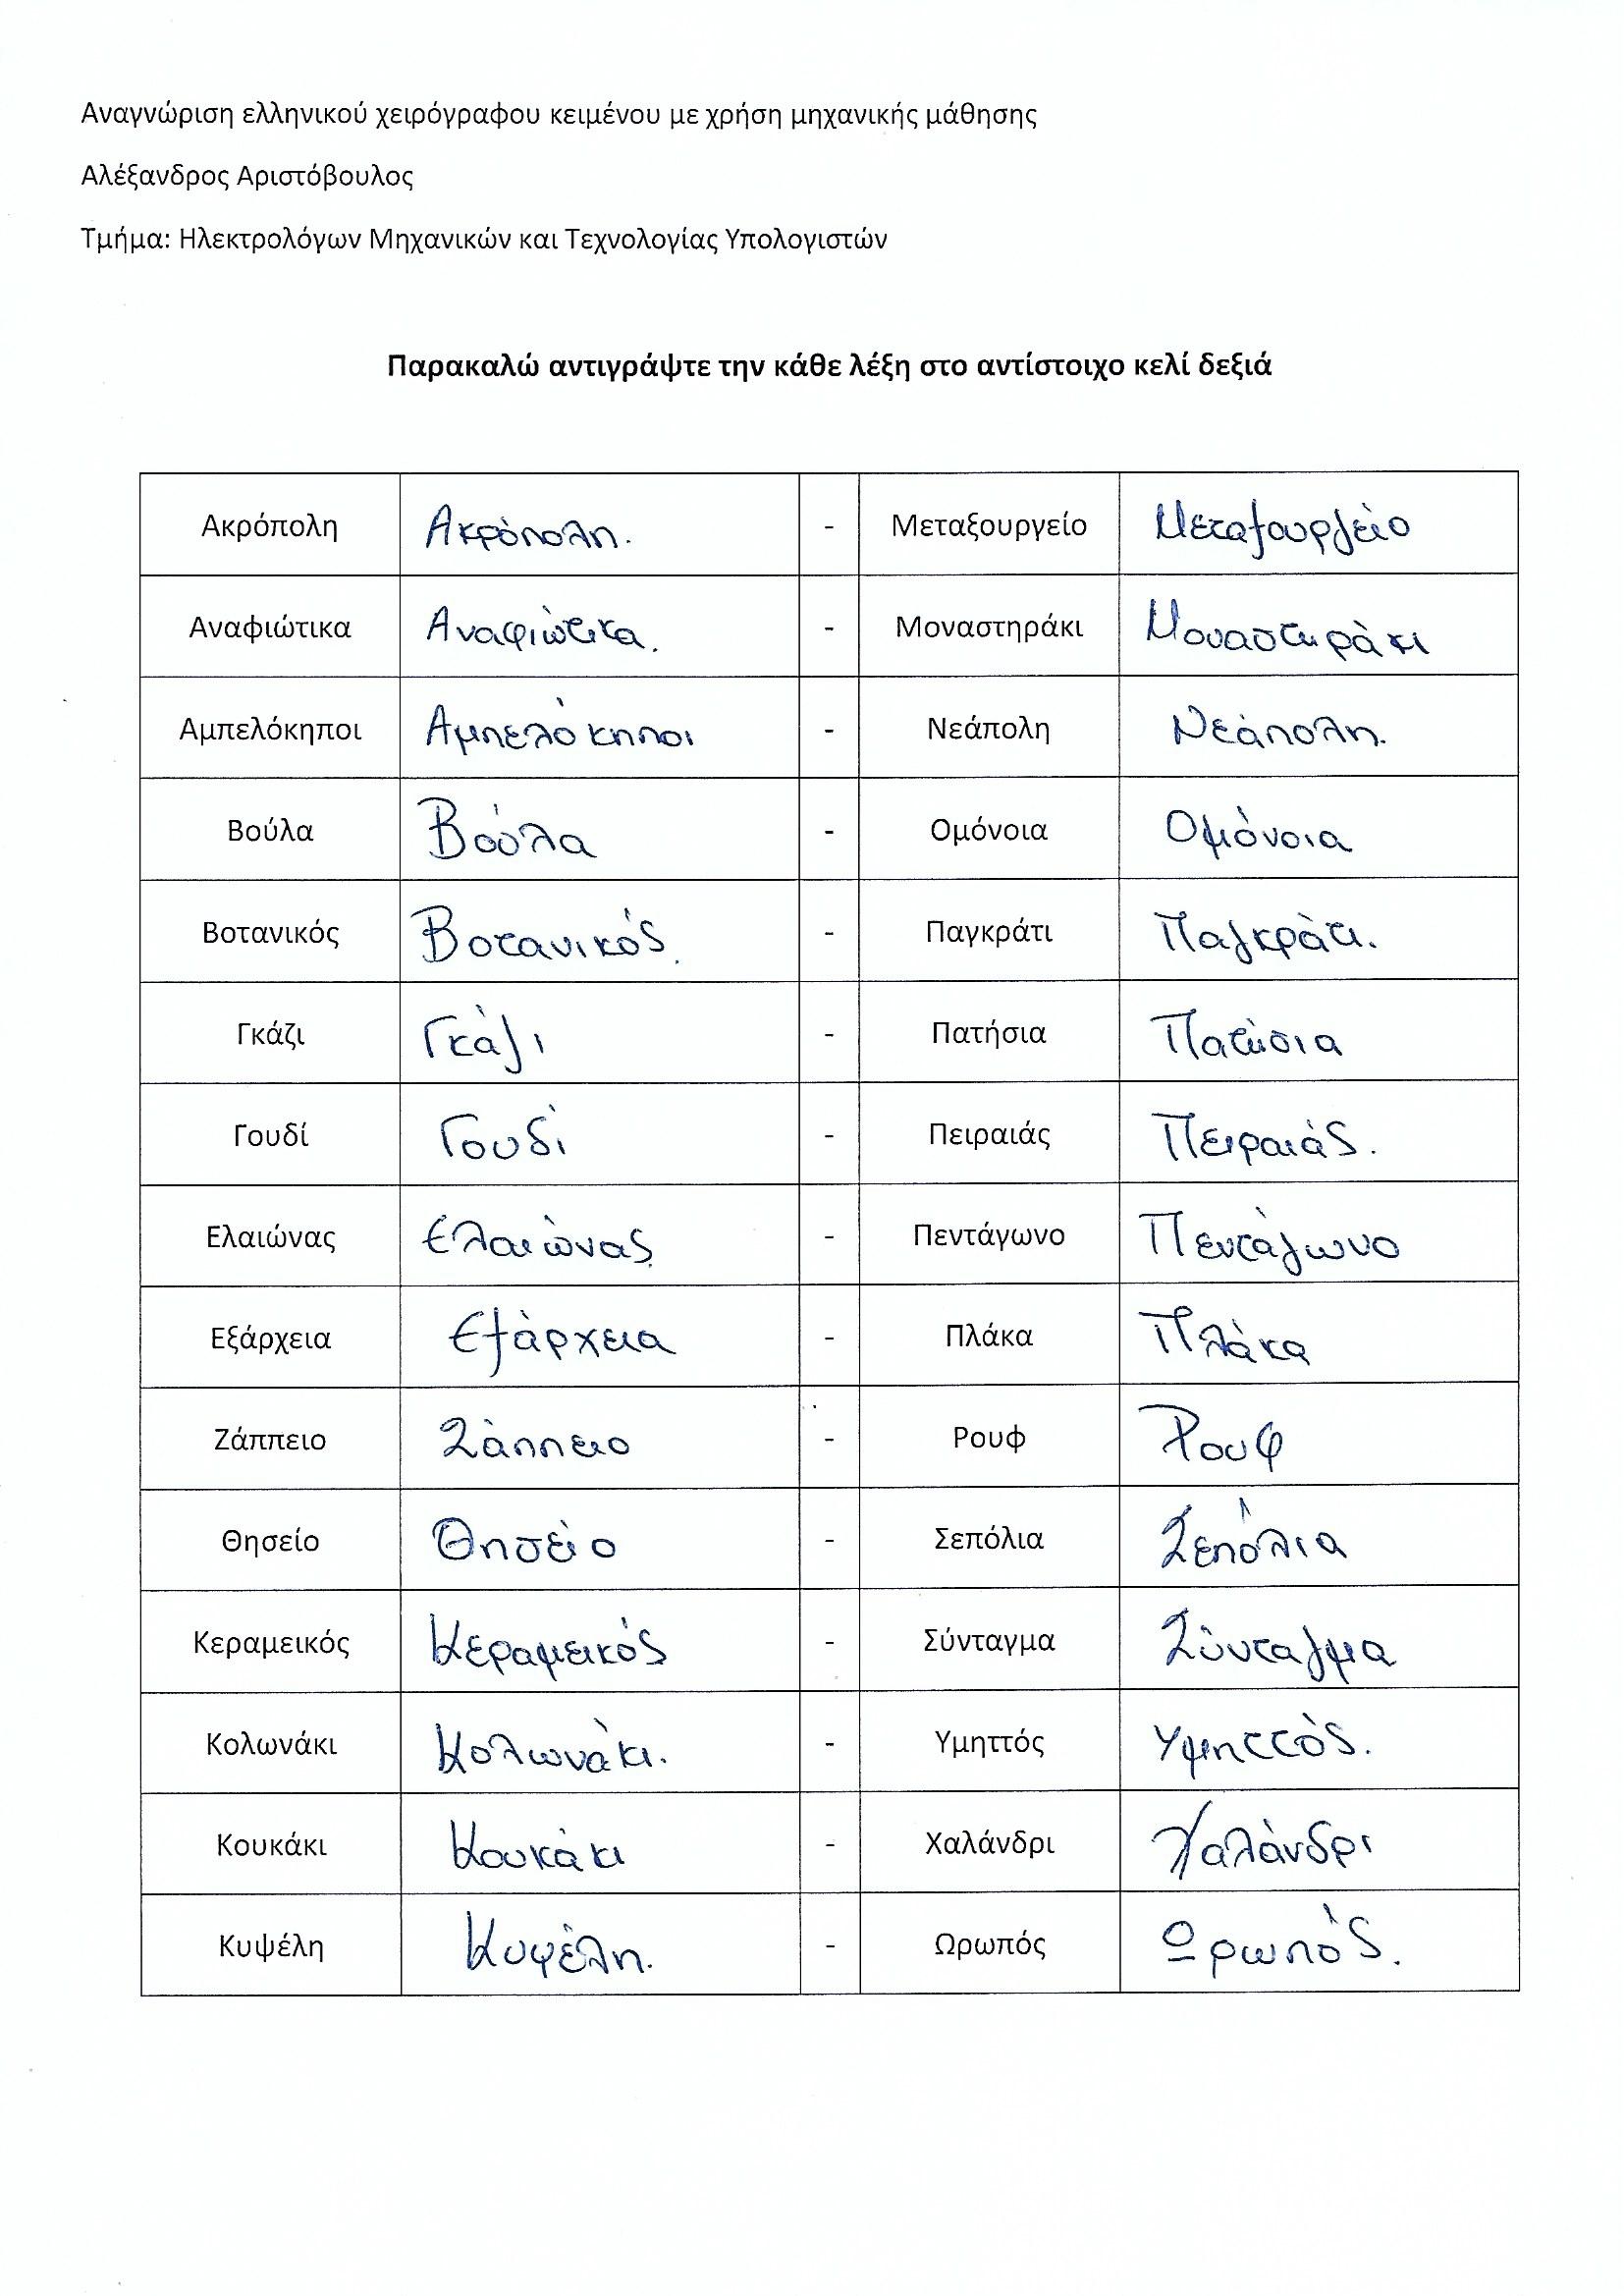 Αναγνώριση ελληνικού χειρόγραφου κειμένου με χρήση μηχανικής μάθησης
Αλέξανδρος Αριστόβουλος
Τμήμα: Ηλεκτρολόγων Μηχανικών και Τεχνολογίας Υπολογιστών
Παρακαλώ αντιγράψτε την κάθε λέξη στο αντίστοιχο κελί δεξιά
Ακρόπολη Ακρόπολη. - Μεταξουργείο Μεταξουργείο
Αναφιώτικα Αναφιώτικα. - Μοναστηράκι Μοναστηράκι
Αμπελόκηποι Αμπελόκηποι - Νεάπολη Νεάπολη.
Βούλα Βούλα - Ομόνοια Ομόνοια
Βοτανικός Βοτανικός. - Παγκράτι Παγκράτι.
Γκάζι Γκάζι - Πατήσια Πατήσια
Γουδί Γουδί - Πειραιάς Πειραιάς.
Ελαιώνας Ελαιώνας. - Πεντάγωνο Πεντάγωνο
Εξάρχεια Εξάρχεια - Πλάκα Πλάκα
Ζάππειο Ζάππειο - Ρουφ Ρουφ
Θησείο Θησείο - Σεπόλια Σεπόλια
Κεραμεικός Κεραμεικός - Σύνταγμα Σύνταγμα
Κολωνάκι Κολωνάκι. - Υμηττός Υμηττός.
Κουκάκι Κουκάκι - Χαλάνδρι Χαλάνδρι
Κυψέλη Κυψέλη. - Ωρωπός Ωρωπός.